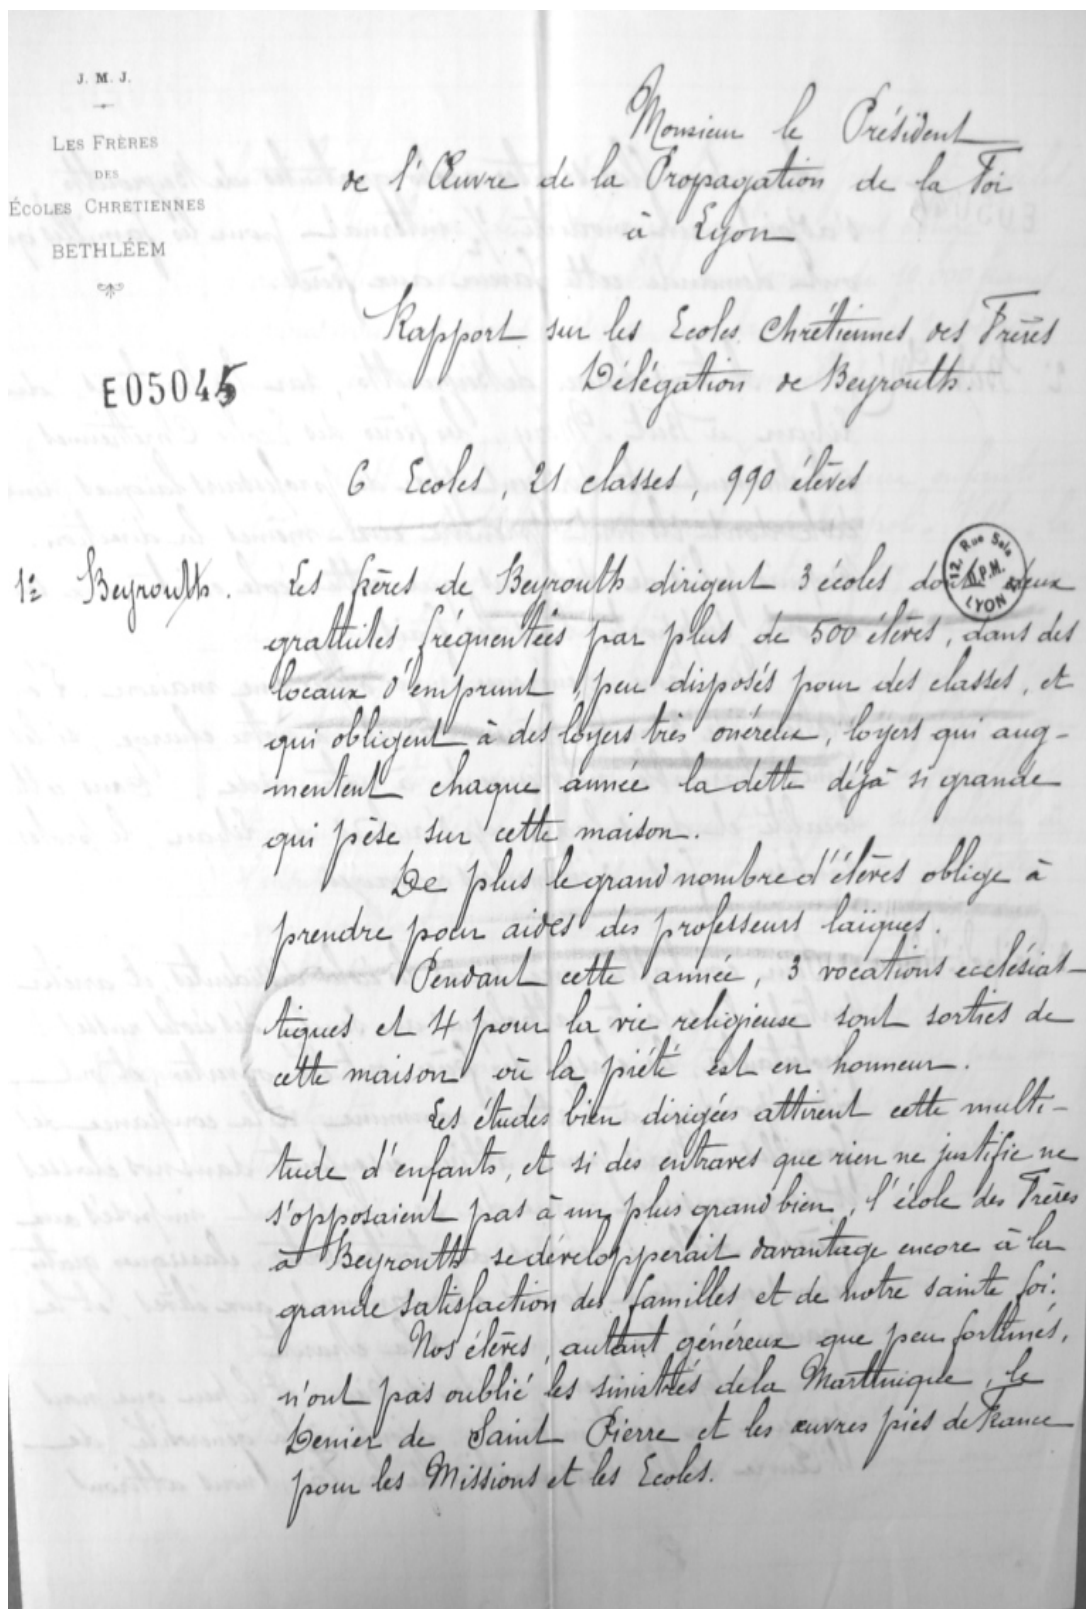 J. M. J.
LES FRÈRES
DES
ÉCOLES CHRÉTIENNES
BETHLÉEM
E05045
Monsieur le Président
de l'Œuvre de la Propagation de la Foi
à Lyon
Rapport sur les Ecoles Chrétiennes des Frères
Délégation de Beyrouth.
6 Ecoles, 21 classes, 990 élèves
12, Rue Sala
P.M.
LYON
1º Beyrouth. Les frères de Beyrouth dirigent 3 écoles dont deux
gratuites fréquentées par plus de 500 élèves, dans des
locaux d'emprunt, peu disposés pour des classes, et
qui obligent à des loyers très onéreux, loyers qui aug-
mentent chaque année la dette déjà si grande
qui pèse sur cette maison.
De plus le grand nombre d'élèves oblige à
prendre pour aides des professeurs laïques.
Pendant cette année, 3 vocations ecclésias-
tiques et 4 pour la vie religieuse sont sorties de
cette maison où la piété est en honneur.
Les études bien dirigées attirent cette multi-
tude d'enfants, et si des entraves que rien ne justifie ne
s'opposaient pas à un plus grand bien, l'école des Frères
à Beyrouth se développerait davantage encore à la
grande satisfaction des familles et de notre sainte foi.
Nos élèves, autant généreux que peu fortunés,
n'ont pas oublié les sinistrés de la Martinique, le
Denier de Saint Pierre et les œuvres pies de France
pour les Missions et les Ecoles.